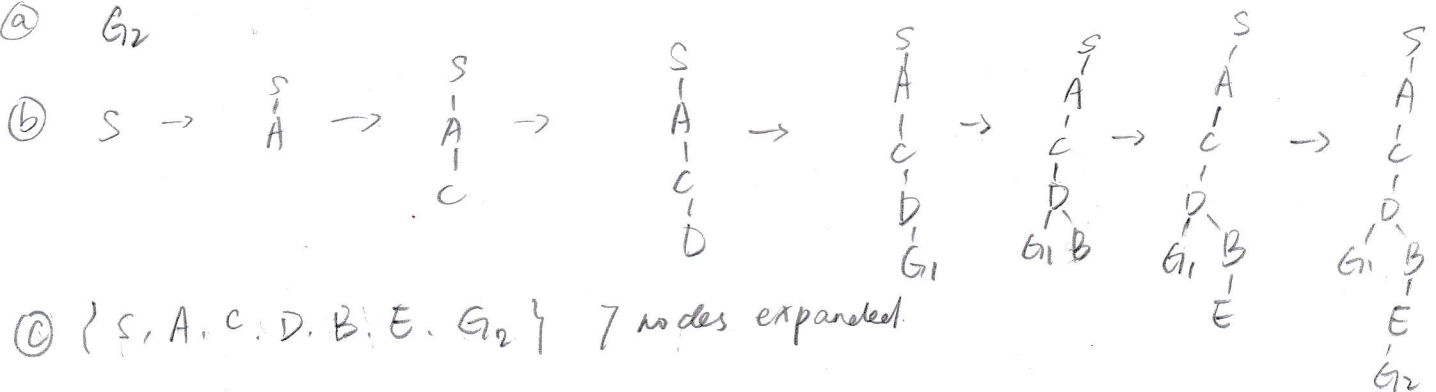 ⓐ G2
ⓑ S → S A → S A C → S A C D → S A C D G1 → S A C D G1 B → S A C D G1 B E → S A C D G1 B E G2
ⓒ { S, A, C, D, B, E, G2 } 7 nodes expanded.